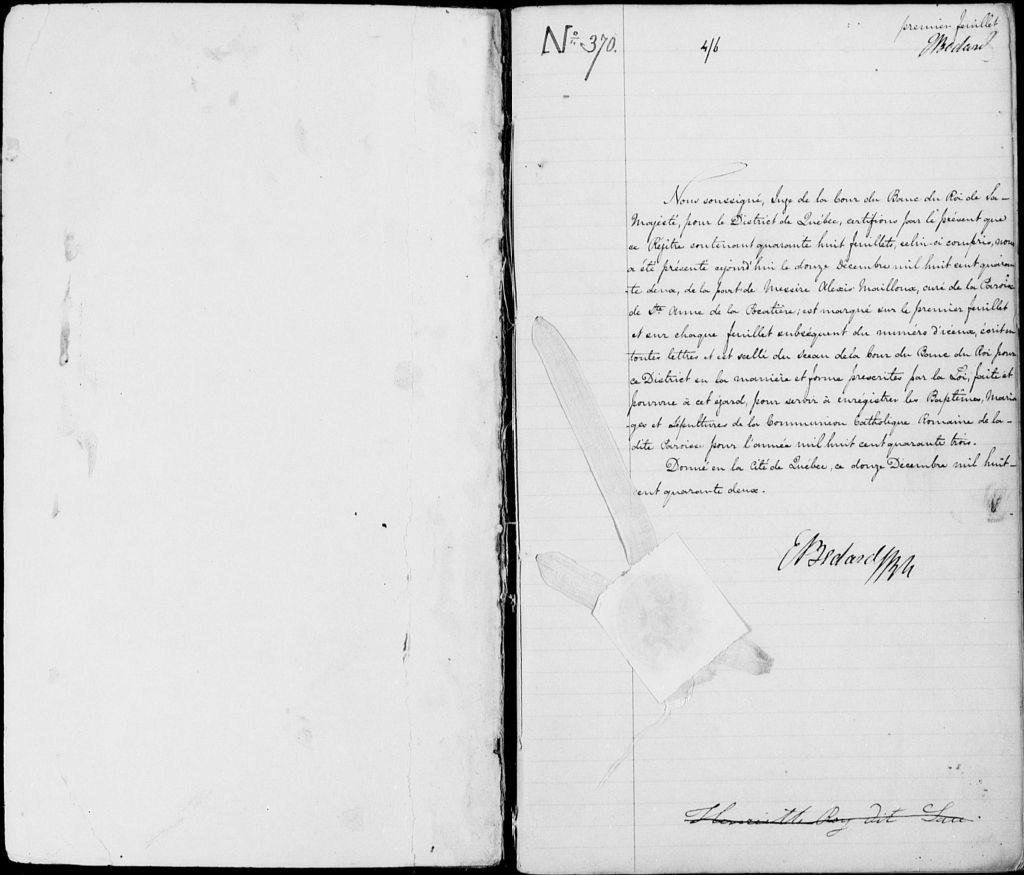 premier feuillet
EBedard
No. 370.
4/6
Nous soussigné, Juge de la Cour du Banc du Roi de Sa-
Majesté, pour le District de Québec, certifions par le présent que
ce Régitre contenant quarante huit feuillets, celui-ci compris, nous
a été présenté aujourd'hui le douze Décembre mil huit cent quaran-
-te deux, de la part de Messire Alexis Mailloux, curé de la Paroisse
de Ste Anne de la Pocatière; est marqué sur le premier feuillet
et sur chaque feuillet subséquent du numéro d'iceux, écrit en
toutes lettres et est scellé du sceau de la Cour du Banc du Roi pour
ce District en la manière et forme prescrites par la Loi, faite et
pourvue à cet égard, pour servir à enregistrer les Baptêmes, Maria-
-ges et Sépultures de la Communion Catholique Romaine de la-
dite Paroisse pour l'année mil huit cent quarante trois.
Donné en la Cité de Québec, ce douze Décembre mil huit-
cent quarante deux.
EBedard JBR
Henriette Roy dit